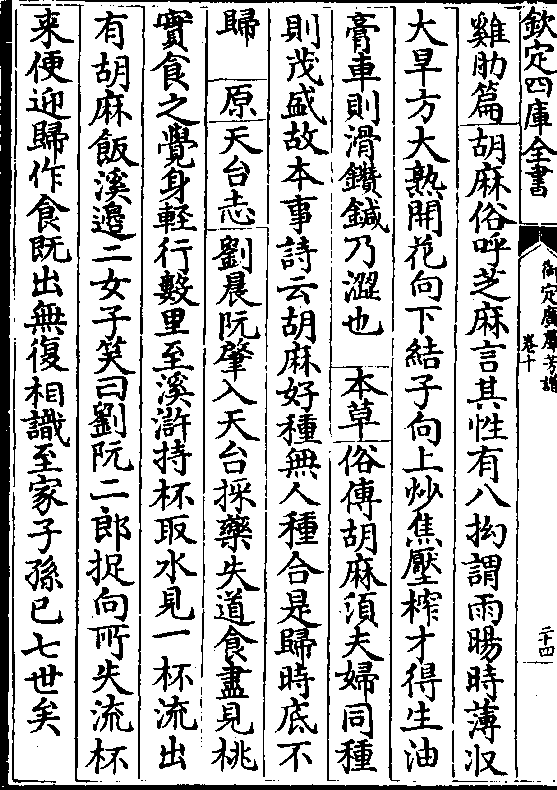 欽定四庫全書
御定廣羣芳譜
卷十
二十四
雞肋篇胡麻俗呼芝麻言其性有八拗謂雨暘時薄収
大旱方大熟開花向下結子向上炒焦壓榨才得生油
膏車則滑鑽鍼乃澀也 本草俗傳胡麻須夫婦同種
則茂盛故本事詩云胡麻好種無人種合是歸時底不
歸 原天台志劉晨阮肇入天台採藥失道食盡見桃
實食之覺身輕行數里至溪滸持杯取水見一杯流出
有胡麻飯溪邉二女子笑曰劉阮二郎捉向所失流杯
来便迎歸作食既出無復相識至家子孫已七世矣